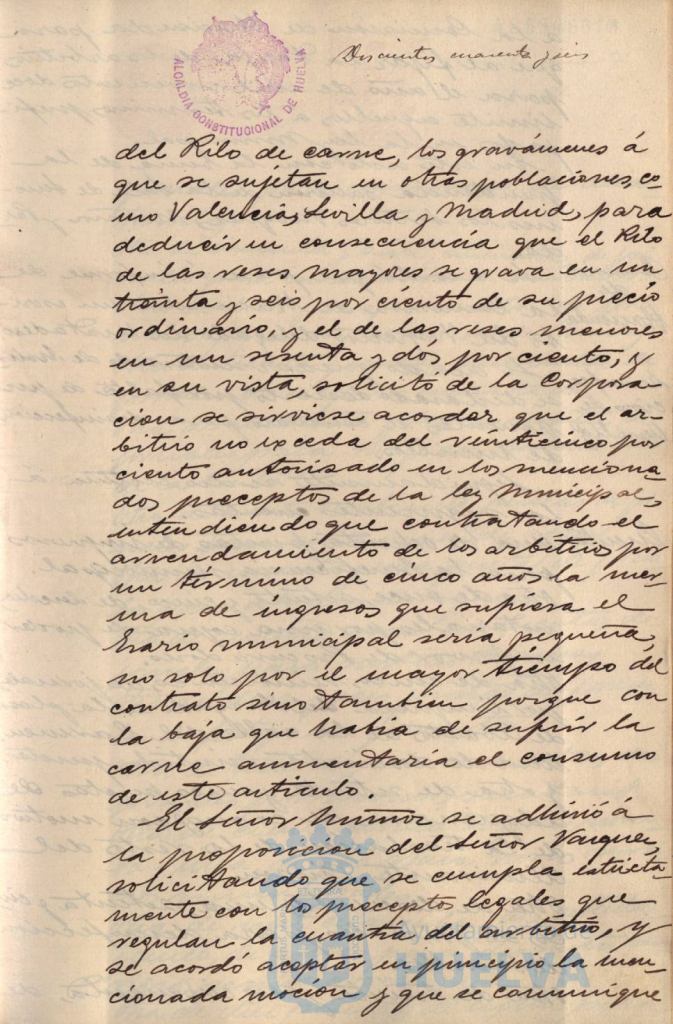 Doscientos cuarenta y seis
ALCALDIA CONSTITUCIONAL DE HUELVA
del Kilo de carne, los gravámenes á
que se sujetan en otras poblaciones, co-
mo Valencia, Sevilla y Madrid, para
deducir en consecuencia que el Kilo
de las reses mayores se grava en un
treinta y seis por ciento de su precio
ordinario, y el de las reses menores
en un sesenta y dós por ciento, y
en su vista, solicitó de la Corpora-
cion se sirviese acordar que el ar-
bitrio no exceda del veinticinco por
ciento autorisado en los menciona-
dos preceptos de la ley Municipal,
entendiendo que contratando el
arrendamiento de los arbitrios por
un término de cinco años la mer-
ma de ingresos que sufriera el
Erario municipal seria pequeña,
no solo por el mayor tiempo del
contrato sino tambien porque con
la baja que habia de sufrir la
carne aumentaria el consumo
de este articulo.
El Señor Muñoz se adhirió á
la proposicion del Señor Vazquez,
solicitando que se cumpla estricta-
mente con los preceptos legales que
regulan la cuantia del arbitrio, y
se acordó aceptar en principio la men-
cionada moción y que se comunique
HUELVA